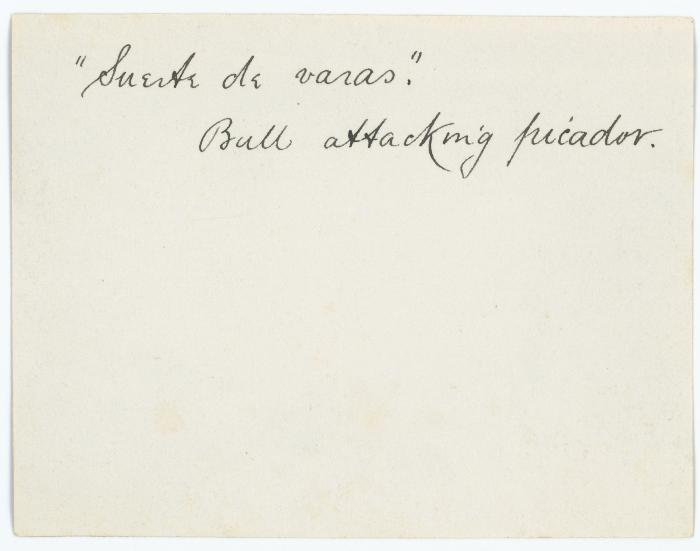 "Suerte de varas."
Bull attacking picador.